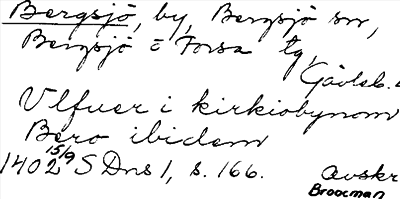 Bergsjö, by, Bergsjö sn,
Bergsjö o Forsa tg,
Gävleb.
Ulfuer i kirkiobynom
Bero ibidem
1402 15/9 S Dns 1, s. 166.
Avskr
Broocman